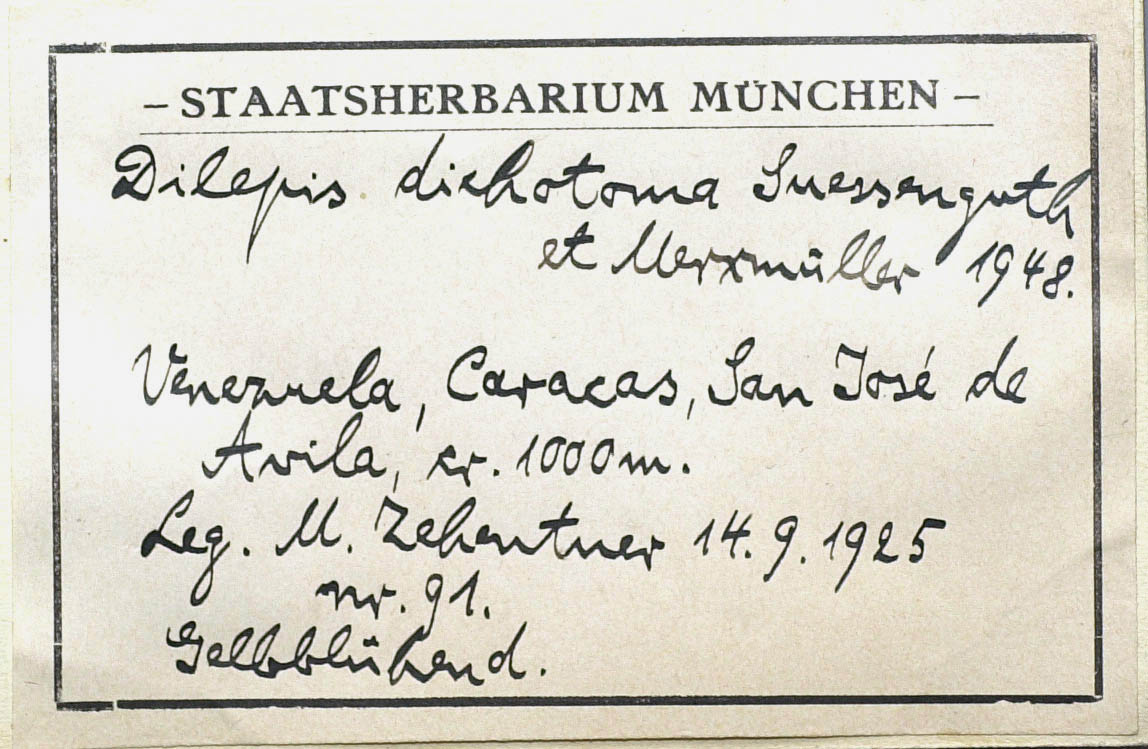 - STAATSHERBARIUM MÜNCHEN -
Dilepis dichotoma Suessenguth
et Merxmüller 1948.
Venezuela, Caracas, San José de
Avila, cr. 1000 m.
Leg. M. Zehentner 14.9.1925
nr. 91.
Gelbblühend.